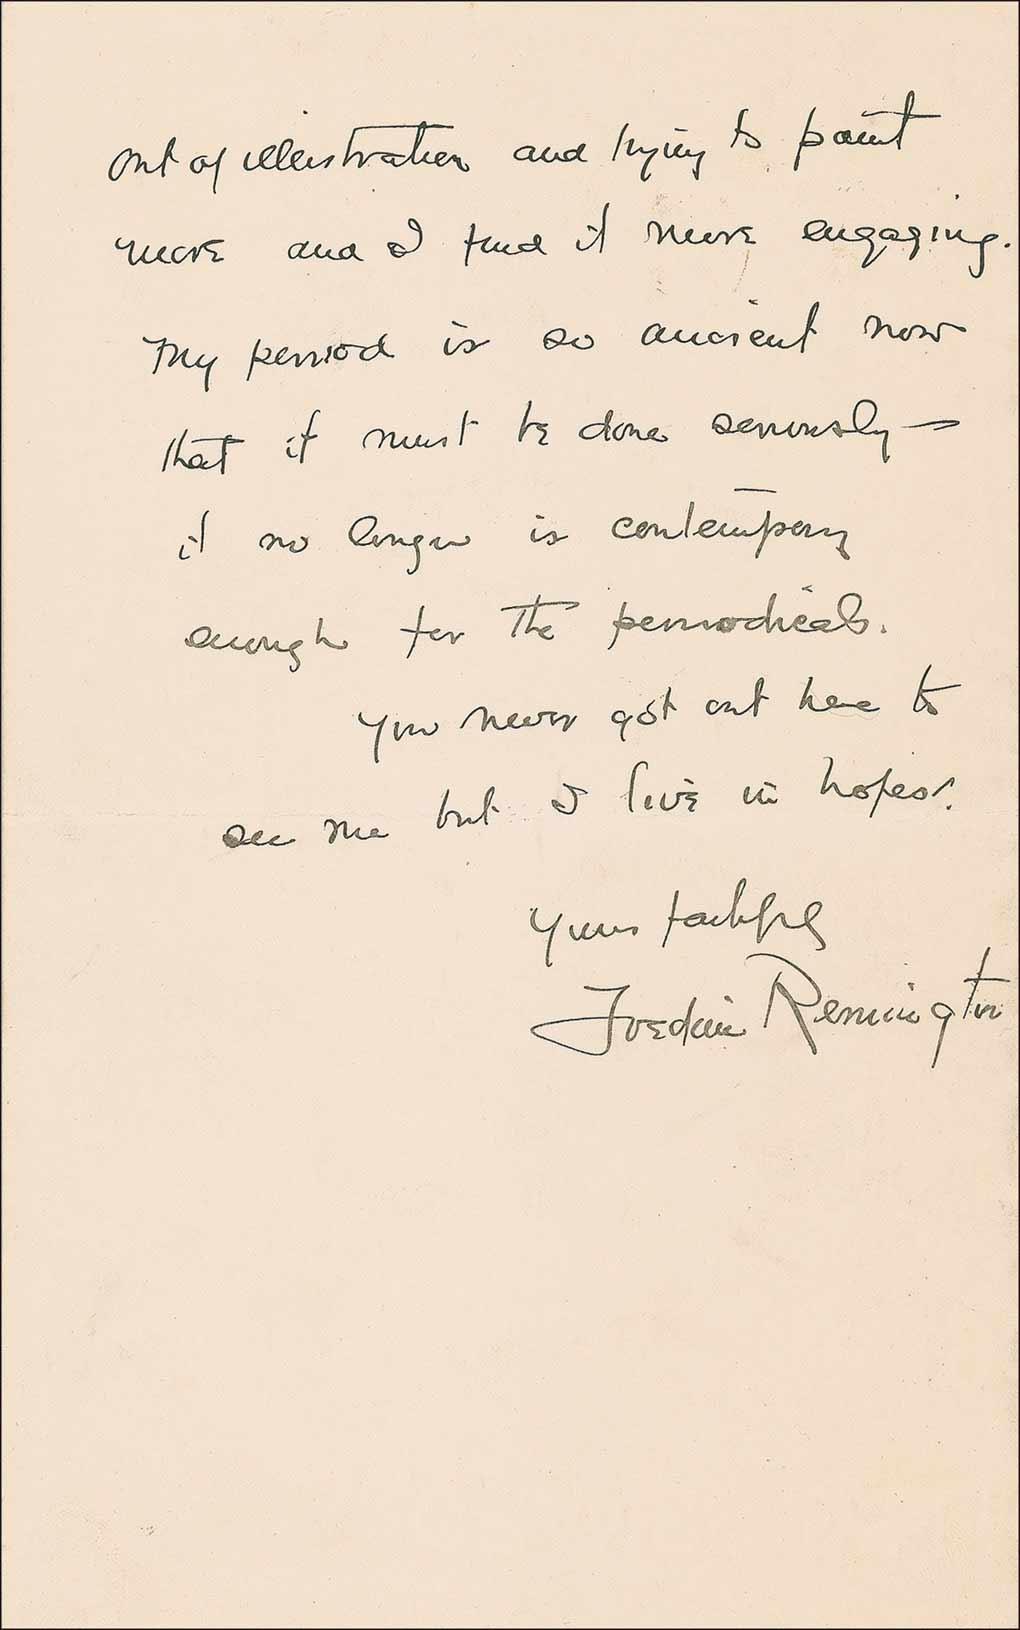 out of illustration and trying to paint
more and I find it more engaging.
My period is so ancient now
that it must be done seriously —
it no longer is contempory
enough for the periodicals.
You never got out here to
see me but I live in hopes.
Yours faithfly
Frederic Remington